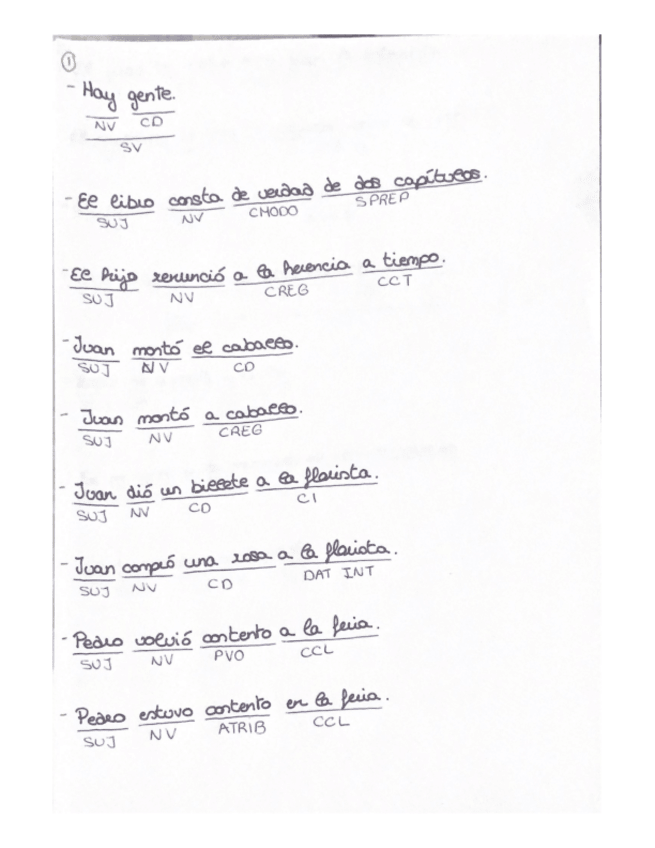 1
- Hay gente.
NV CD
SV
- El libro consta de verdad de dos capítulos.
SUJ NV CMODO SPREP
- El hijo renunció a la herencia a tiempo.
SUJ NV CREG CCT
- Juan montó el caballo.
SUJ NV CD
- Juan montó a caballo.
SUJ NV CREG
- Juan dió un billete a la florista.
SUJ NV CD CI
- Juan compró una rosa a la florista.
SUJ NV CD DAT INT
- Pedro volvió contento a la feria.
SUJ NV PVO CCL
- Pedro estuvo contento en la feria.
SUJ NV ATRIB CCL